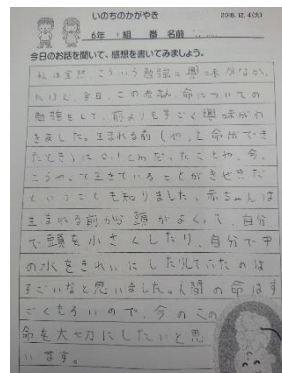 いのちのかがやき
2018.12.4(火)
6年 1組 番 名前
今日のお話を聞いて、感想を書いてみましょう。
私は全然、こういう勉強に興味がなか
たけど、今日、この考え 命についての
勉強をして、前よりもすごく興味がわ
きました。生まれる前(や、と命ができ
たとき)は0.1cmだったことや、今、
こうやって生きていることがきせきだ
ということも知りました。赤ちゃんは
生まれる前から頭がよくて、自分
で頭を小さくしたり、自分で中
の水をきれいにしたりしていたのは
すごいなと思いました。人間の命はす
ごくもろいので、今のこの
命を大切にしたいと思
います。